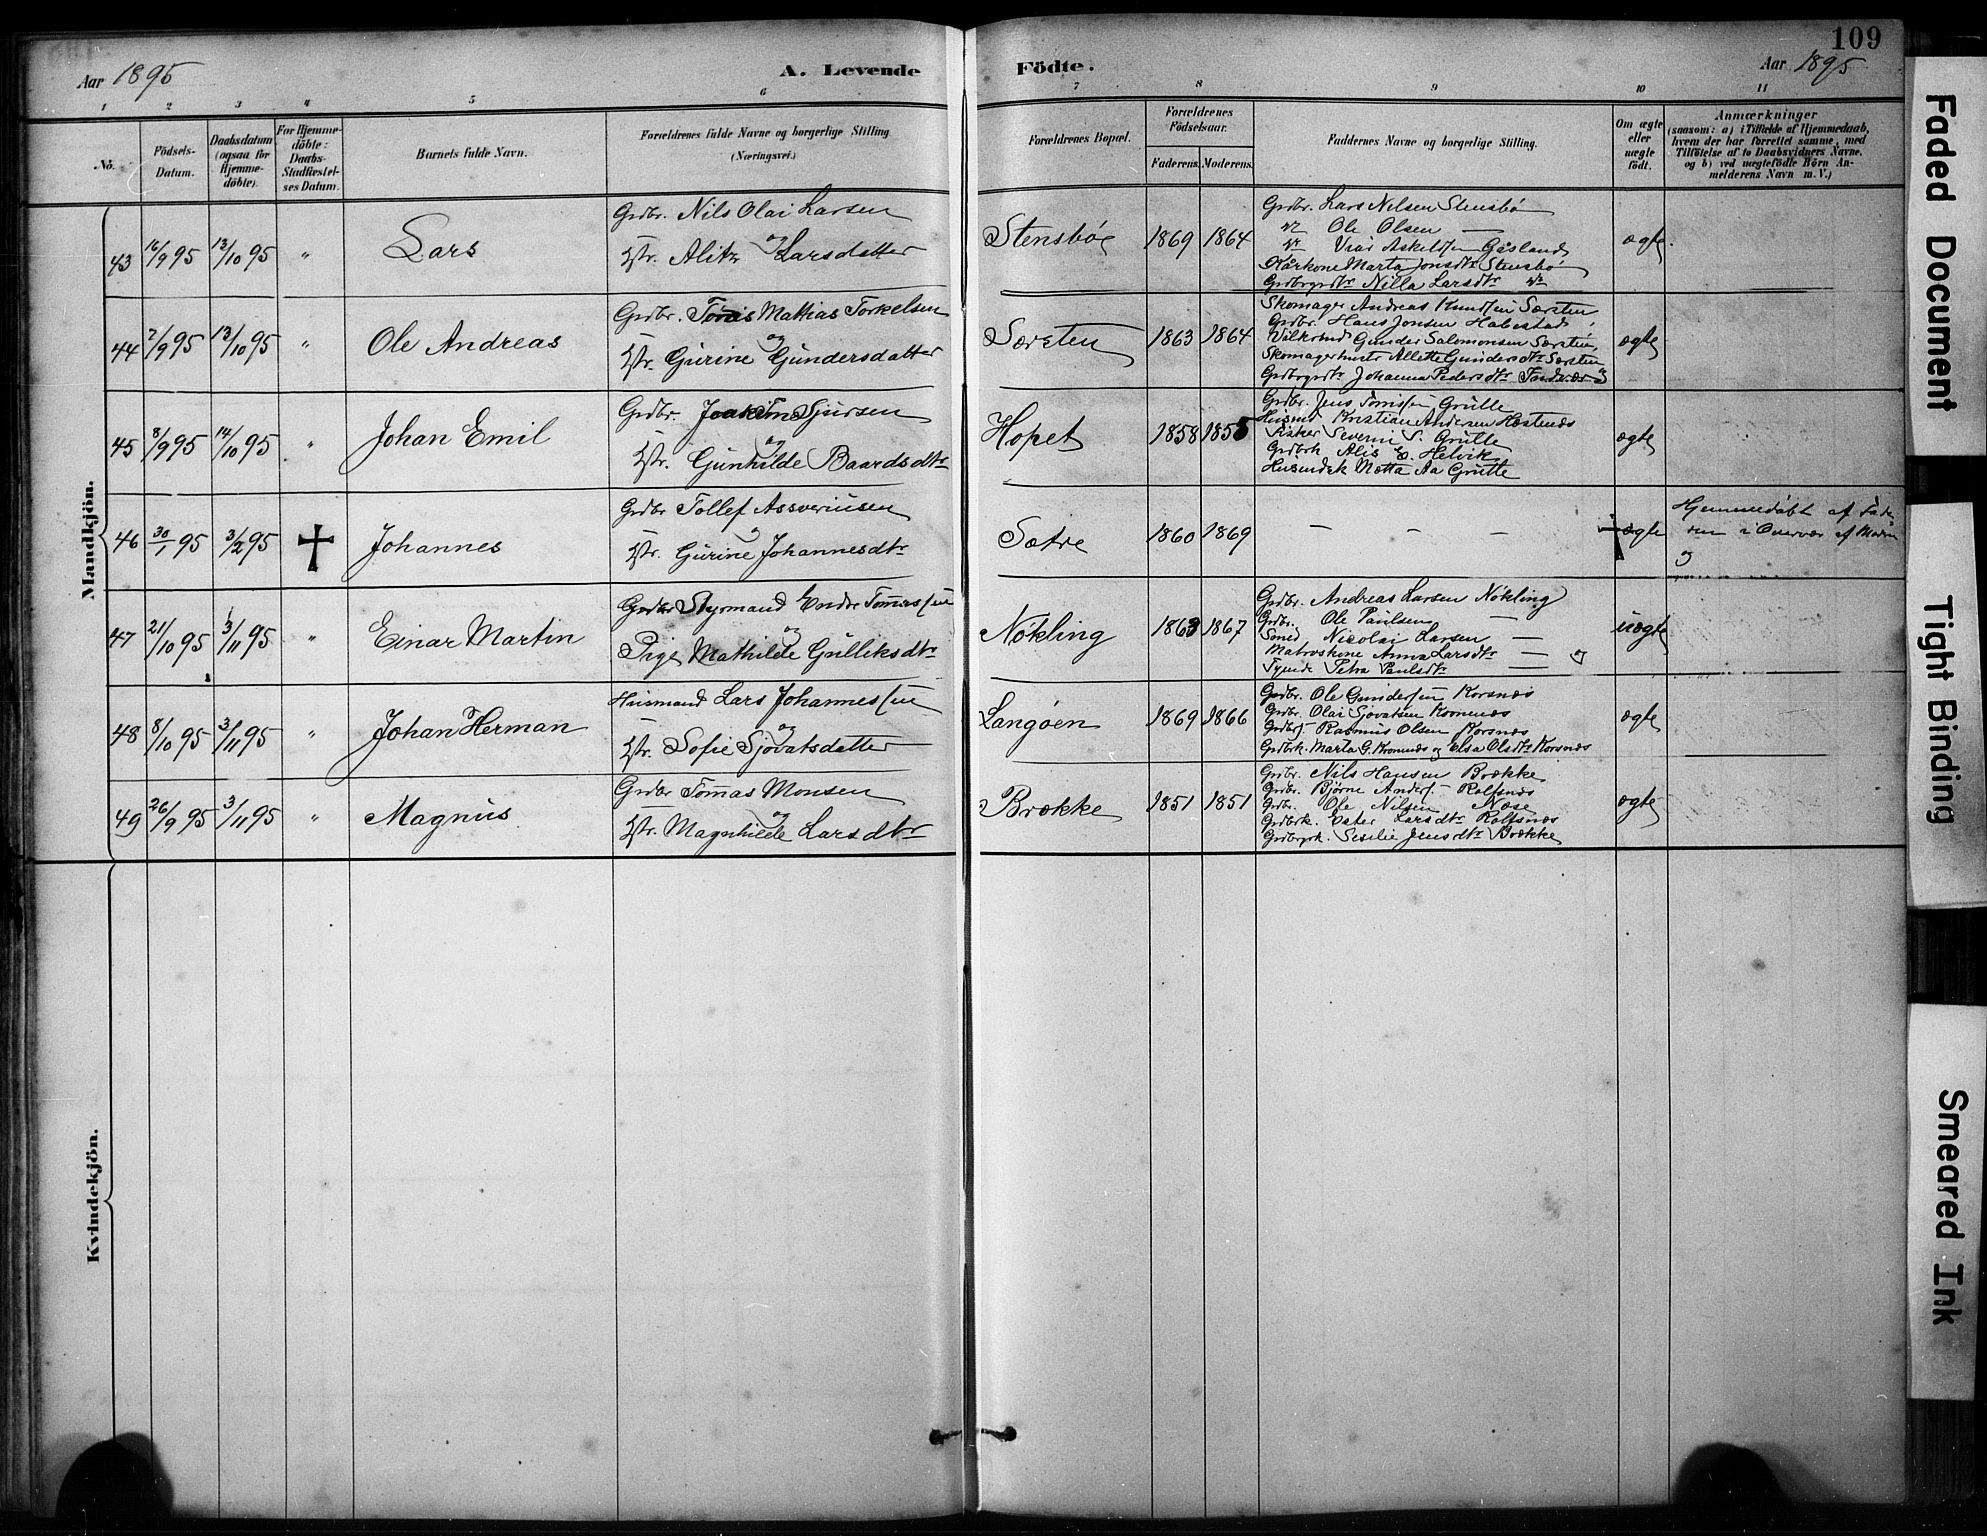 109
Aar 1895
A. Levende Födte.
Aar 1895
1 2 3 4 5 6 7 8 9 10 11
No.
Födsels-
Datum.
Daabsdatum
(ogsaa for
Hjemme-
döbte).
For Hjemme-
döbte:
Daabs-
Stadfæstel-
ses Datum.
Barnets fulde Navn.
Forældrenes fulde Navne og borgerlige Stilling.
(Næringsvei.)
Forældrenes Bopæl.
Forældrenes
Födselsaar.
Faderens. Moderens.
Faddernes Navne og borgerlige Stilling.
Om ægte
eller
uægte
födt.
Anmærkninger
(saasom: a) i Tilfælde af Hjemmedaab,
hvem der har forrettet samme, med
Tilföielse af to Daabsvidners Navne.
og b) ved uægtefödte Börn An-
melderens Navn m. V.)
Mandkjön.
43 16/9 95 13/10 95 " Lars
Grdbr. Nils Olai Larsen
og
Hstr. Alitz Larsdatter
Stensbøe 1869 1864
Grdbr. Lars Nilsen Stensbø
Ole Olsen —
Vrai Askeldsen Gåsland
Kårkone Marta Jonsdtr Stensbø
Grdbrgdtr Nilla Larsdtr
ægte
44 2/9 95 13/10 95 " Ole Andreas
Grdbr. Tønis Mathias Torkelsen
og
Hstr. Gurine Gundersdatter
Særsten 1863 1864
Skomager Andreas Knudsen Særsten
Grdbr. Hans Jonsen Habestad
Gunder Salomonsen Særsten
Skomagerhustr Allette Gundersdtr Særsten
Grdbrgdtr Johanna Pedersdtr
ægte
45 8/9 95 14/10 95 " Johan Emil
Grdbr. Joakim Sjursen
og
Hstr. Gunhilde Baardsdtr
Hopet 1858 1855
Grdbr. Jens Tønnissen Grutle
Husmd Kristian Andersen Hæstenæs
Fisker Severin S. Grutle
Grdbrk Alis E. Helvik
Husmdsk Mætta Aa Grutle
ægte
46 30/1 95 3/2 95 † Johannes
Grdbr Tollef Assveriusen
og
Hstr. Gurine Johannesdtr
Sætre 1860 1869 — — —
† ægte
Hjemmedøbt af Fade-
ren i Overvær af Modren
og
47 21/10 95 3/11 95 " Einar Martin
Grdbr Styrmand Endre Tomassen
og
Pige Mathilde Gulliksdtr
Nøkling 1863 1867
Grdbr. Andreas Larsen Nøkling
Grdbr. Ole Paulsen —
Smed Nicolai Larsen —
Matroskone Anna Larsdtr — og
Tjende Petra Paulsdtr —
uægte
48 8/10 95 3/11 95 " Johan Herman
Husmand Lars Johannessen
og
Hstr. Sofie Sjovatsdatter
Langøen 1869 1866
Grdbr. Ole Gundersen Korsnæs
Grdbr. Olai Sjovatsen Kronenæs
Grdbrs. Rasmus Olsen Korsnæs
Grdbrk. Marta G. Kronenæs og Elsa Olsdtr Korsnæs
ægte
49 26/9 95 3/11 95 " Magnus
Grdbr Tomas Monsen
og
Hstr. Magnhilde Larsdtr
Brække 1851 1851
Grdbr. Nils Hansen Brække
Grdbr. Bjørne Anders. Rolfsnæs
Grdbr. Ole Nilsen Næse
Grdbrk. Ester Larsdtr Rolfsnæs
Grdbrgpk. Sesilie Jensdtr Brække
ægte
Kvindekjön.
Faded Document
Tight Binding
Smeared Ink